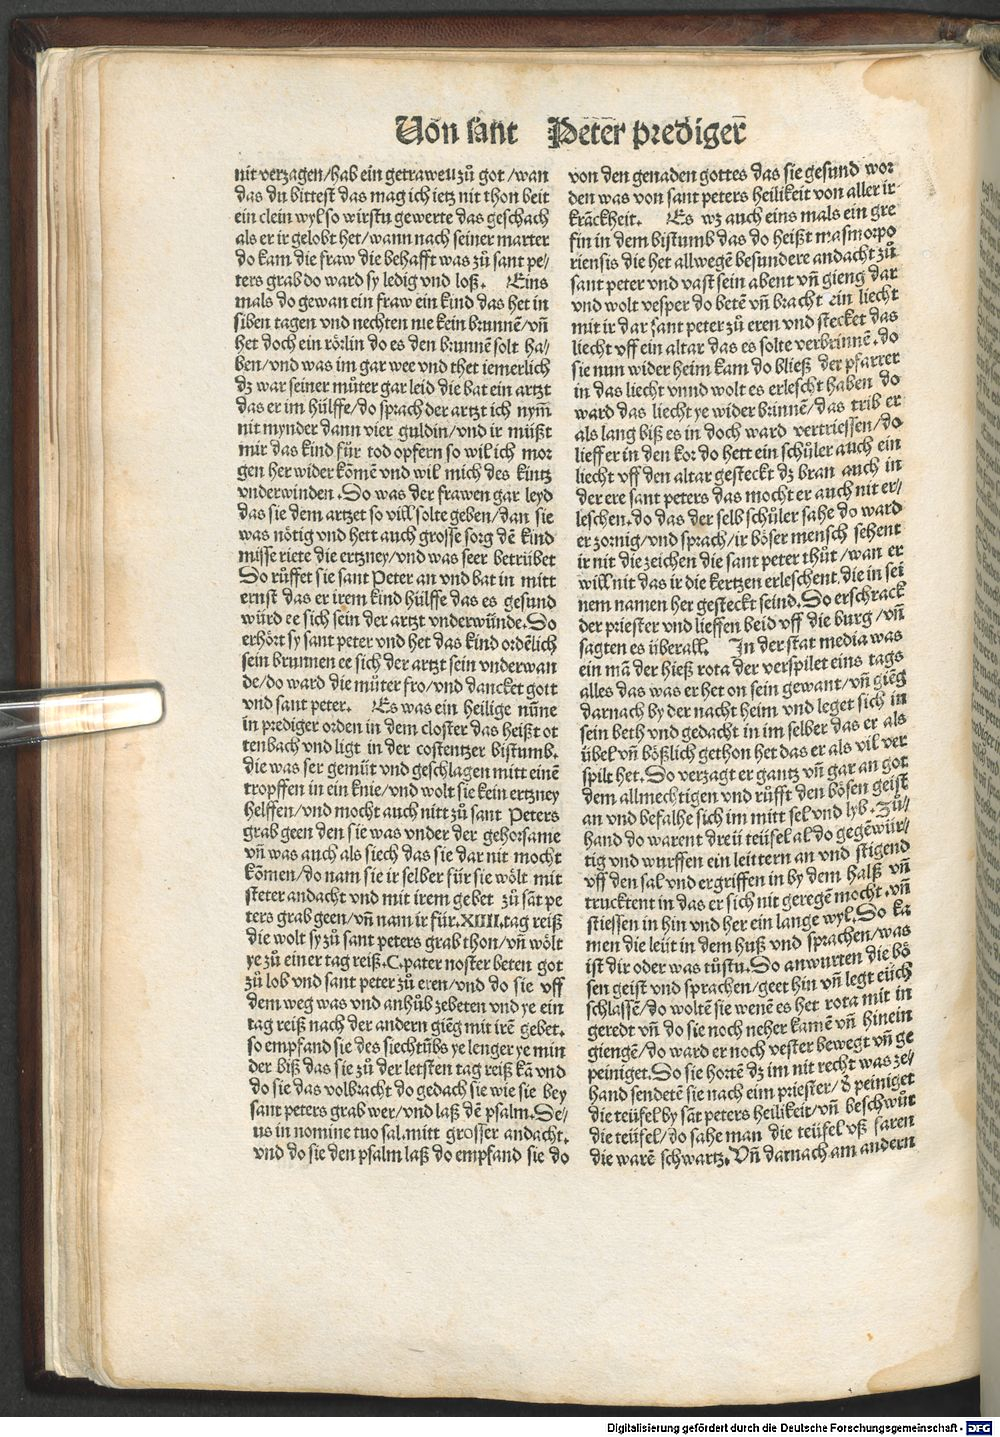 Von sant Peter prediger̄
nit verzagen/hab ein getrawen zů got/wan
das du bittest das mag ich ietz nit thon beit
ein clein wyl so wirstu gewerte das geschach
als er ir gelobt het/wann nach seiner marter
do kam die fraw die behafft was zů sant pe⸗
ters grab do ward sy ledig vnd loß. Eins
mals do gewan ein fraw ein kind das het in
siben tagen vnd nechten nie kein brunnē/vn̄
het doch ein rörlin do es den brunnē solt ha⸗
ben/vnd was im gar wee vnd thet iemerlich
dz war seiner můter gar leid die bat ein artzt
das er im hülffe/do sprach der artzt ich nym̄
nit mynder dann vier guldin/vnd ir müßt
mir das kind für tod opfern so wil ich mor
gen her wider kōmē vnd wil mich des kintz
vnderwinden. Do was der frawen gar leyd
das sie dem artzet so vill solte geben/dan sie
was nötig vnd hett auch grosse sorg dē kind
misse riete die ertzney/vnd was seer betrübet
Do růffet sie sant Peter an vnd bat in mitt
ernst das er irem kind hülffe das es gesund
würd ee sich sein der artzt vnderwünde. Do
erhört sy sant peter vnd het das kind ordēlich
sein brunnen ee sich der artzt sein vnderwan
de/do ward die můter fro/vnd dancket gott
vnd sant peter. Es was ein heilige nūne
in prediger orden in dem closter das heißt ot
tenbach vnd ligt in der costentzer bistumb.
die was ser gemüt vnd geschlagen mitt einē
tropffen in ein knie/vnd wolt sie kein ertzney
helffen/vnd mocht auch nitt zů sant Peters
grab geen den sie was vnder der gehorsame
vn̄ was auch als siech das sie dar nit mocht
kōmen/do nam sie ir selber für sie wölt mit
steter andacht vnd mit irem gebet zů sāt pe
ters grab geen/vn̄ nam ir für. XIIII. tag reiß
die wolt sy zů sant peters grab thon/vn̄ wölt
ye zů einer tag reiß. C. pater noster beten got
zů lob vnd sant peter zů eren/vnd do sie vff
dem weg was vnd anhůb zebeten vnd ye ein
tag reiß nach der andern giēg mit irē gebet.
so empfand sie des siechtůbs ye lenger ye min
der biß das sie zů der letsten tag reiß kā vnd
do sie das volbracht do gedach sie wie sie bey
sant peters grab wer/vnd laß dē psalm. De⸗
us in nomine tuo sal. mitt grosser andacht.
vnd do sie den psalm laß do empfand sie do
von den genaden gottes das sie gesund wor
den was von sant peters heilikeit von aller ir
krāckheit. Es wz auch eins mals ein gre
fin in dem bistumb das do heißt masmorpo
riensis die het allwegē besundere andacht zů
sant peter vnd vast sein abent vn̄ gieng dar
vnd wolt vesper do betē vn̄ bracht ein liecht
mit ir dar sant peter zů eren vnd stecket das
liecht vff ein altar das es solte verbrinnē. do
sie nun wider heim kam do bließ der pfarrer
in das liecht vnnd wolt es erlescht haben do
ward das liecht ye wider brinnē/das trib er
als lang biß es in doch ward vertriessen/do
lieff er in den kor do hett ein schůler auch ein
liecht vff den altar gesteckt dz bran auch in
der ere sant peters das mocht er auch nit er⸗
leschen. do das der selb schůler sahe do ward
er zornig/vnd sprach/ir böser mensch sehent
ir nit die zeichen die sant peter thůt/wan er
will nit das ir die kertzen erleschent, die in sei
nem namen her gesteckt seind. Do erschrack
der priester vnd lieffen beid vff die burg/vn̄
sagten es überall. In der stat media was
ein mā der hieß rota der verspilet eins tags
alles das was er het on sein gewant/vn̄ giēg
darnach by der nacht heim vnd leget sich in
sein beth vnd gedacht in im selber das er als
übel vn̄ bößlich gethon het das er als vil ver
spilt het. Do verzagt er gantz vn̄ gar an got
dem allmechtigen vnd růfft den bösen geist
an vnd befalhe sich im mitt sel vnd lyb. Zů⸗
hand do warent dreü teüfel al do gegēwür⸗
tig vnd wurffen ein leittern an vnd stigend
vff den sal vnd ergriffen in by dem halß vn̄
trucktent in das er sich nit geregē mocht. vn̄
stiessen in hin vnd her ein lange wyl. Do kā
men die leüt in dem huß vnd sprachen/was
ist dir oder was tůstu. Do anwurten die bö
sen geist vnd sprachen/geet hin vn̄ legt eüch
schlassē/do woltē sie wenē es het rota mit in
geredt vn̄ do sie noch neher kamē vn̄ hinein
giengē/do ward er noch vester bewegt vn̄ ge
peiniget. Do sie hortē dz im nit recht was ze⸗
hand sendetē sie nach eim priester/d̕ peiniget
die teüfel by sāt peters heilikeit/vn̄ beschwůr
die teüfel/do sahe man die teüfel vß faren
die warē schwartz. Vn̄ darnach am andern
Digitalisierung gefördert durch die Deutsche Forschungsgemeinschaft - DFG